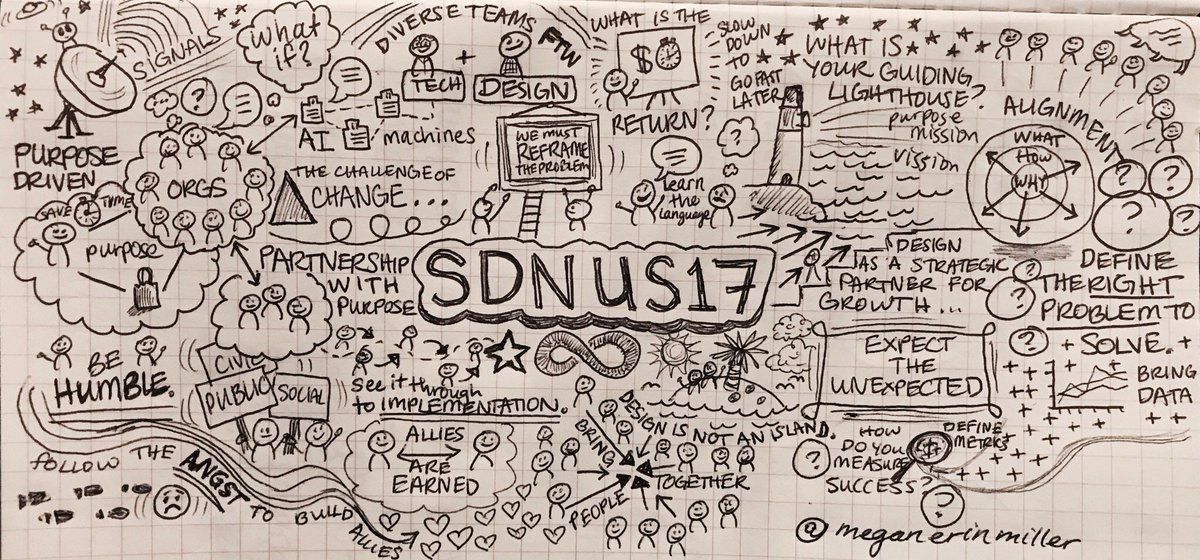 SIGNALS
what
if?
DIVERSE TEAMS
FTW
TECH
+
DESIGN
WHAT IS THE
$
RETURN?
SLOW
DOWN
TO
GO FAST
LATER
WHAT IS
YOUR GUIDING
LIGHTHOUSE?
purpose
mission
vission
ALIGNMENT
WHAT
HOW
WHY
PURPOSE
DRIVEN
?
ORGS
AI
machines
THE CHALLENGE OF
CHANGE...
WE MUST
REFRAME
THE PROBLEM
?
learn
the
language
SAVE TIME
purpose
PARTNERSHIP
WITH
PURPOSE
SDNUS17
DESIGN
AS A STRATEGIC
PARTNER FOR
GROWTH...
?
?
?
?
?
?
?
DEFINE
THE RIGHT
PROBLEM TO
SOLVE.
BRING
DATA
BE
HUMBLE.
CIVIC
PUBLIC
SOCIAL
see it through
to IMPLEMENTATION.
EXPECT
THE
UNEXPECTED
DESIGN IS NOT AN ISLAND.
ALLIES
ARE
EARNED
BRING
PEOPLE
TOGETHER
HOW
DO YOU
MEASURE
SUCCESS?
?
?
$
DEFINE
METRICS
FOLLOW THE ANGST TO BUILD ALLIES
@meganerinmiller